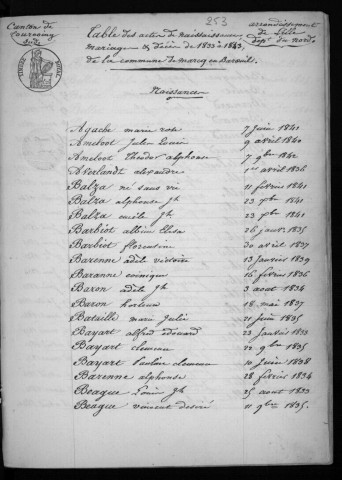 Canton de
Tourcoing
253
arrondissement
de Lille
dépt. du nord.
Table des actes de naissances
mariages & décès de 1833 à 1843,
de la commune de marcq en Baroeul.
Naissances
Agache marie rose 7 juin 1841
Ameloot Jules Louis 9 avril 1840
Ameloot Théodor alphonse 7 9bre 1842
Averlandt alexandre 1er avril 1836
Balza né sans vie 11 février 1841
Balza alphonse Jh 23 7bre 1841
Balza emile Jh 23 7bre 1841
Barbiot albin Elisa 26 janv 1835
Barbiot florentine 30 avril 1837
Barenne adèle victoire 13 janvier 1839
Baranne 16 février 1836
Baron adèle Jh 3 aout 1834
Baron hortense 18 mai 1837
Bataille marie Julie 21 juin 1835
Bayart alfred édouard 23 janvier 1833
Bayart clemence 22 9bre 1835
Bayart Pauline clemence 10 juin 1838
Barenne alphonse 28 février 1834
Beague Louis Jh 25 aout 1833
Beague vincent desiré 11 9bre 1835.